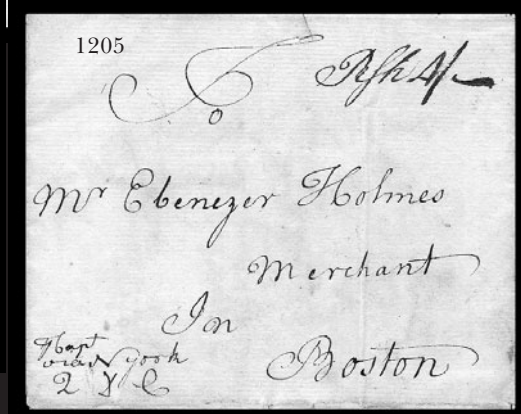 1205
To
Mr Ebenezer Holmes
Merchant
In
Boston
via N york
2 D C